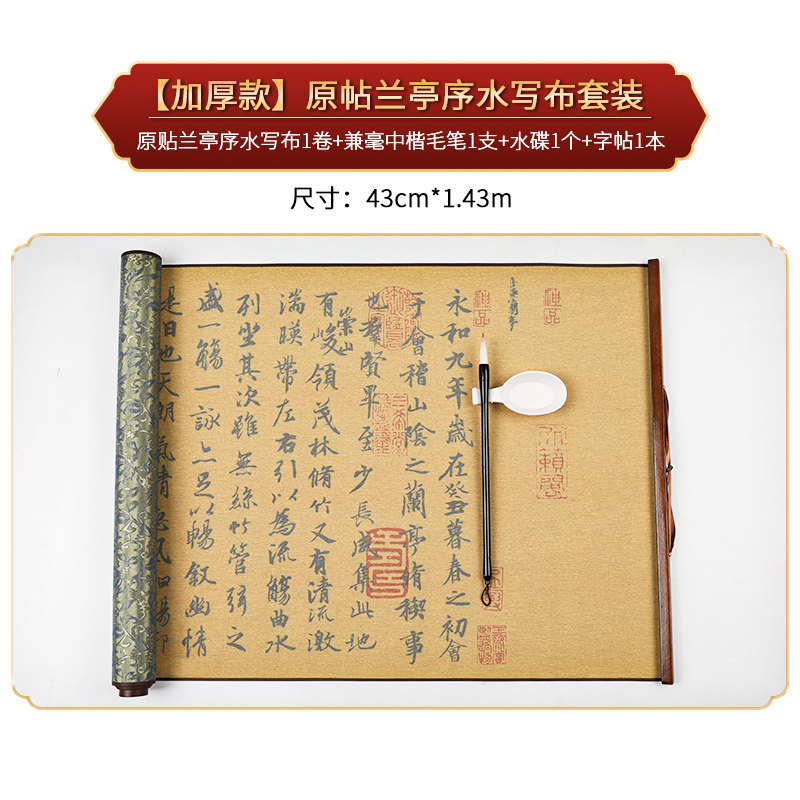 【加厚款】原帖兰亭序水写布套装
原贴兰亭序水写布1卷+兼毫中楷毛笔1支+水碟1个+字帖1本
尺寸：43cm*1.43m
神品
神品
永和九年歲在癸丑暮春之初會
于會稽山陰之蘭亭脩禊事
也羣賢畢至少長咸集此地
有崇山峻領茂林脩竹又有清流激
湍暎帶左右引以為流觴曲水
列坐其次雖無絲竹管弦之
盛一觴一詠亦足以暢敘幽情
是日也天朗氣清惠風和暢仰